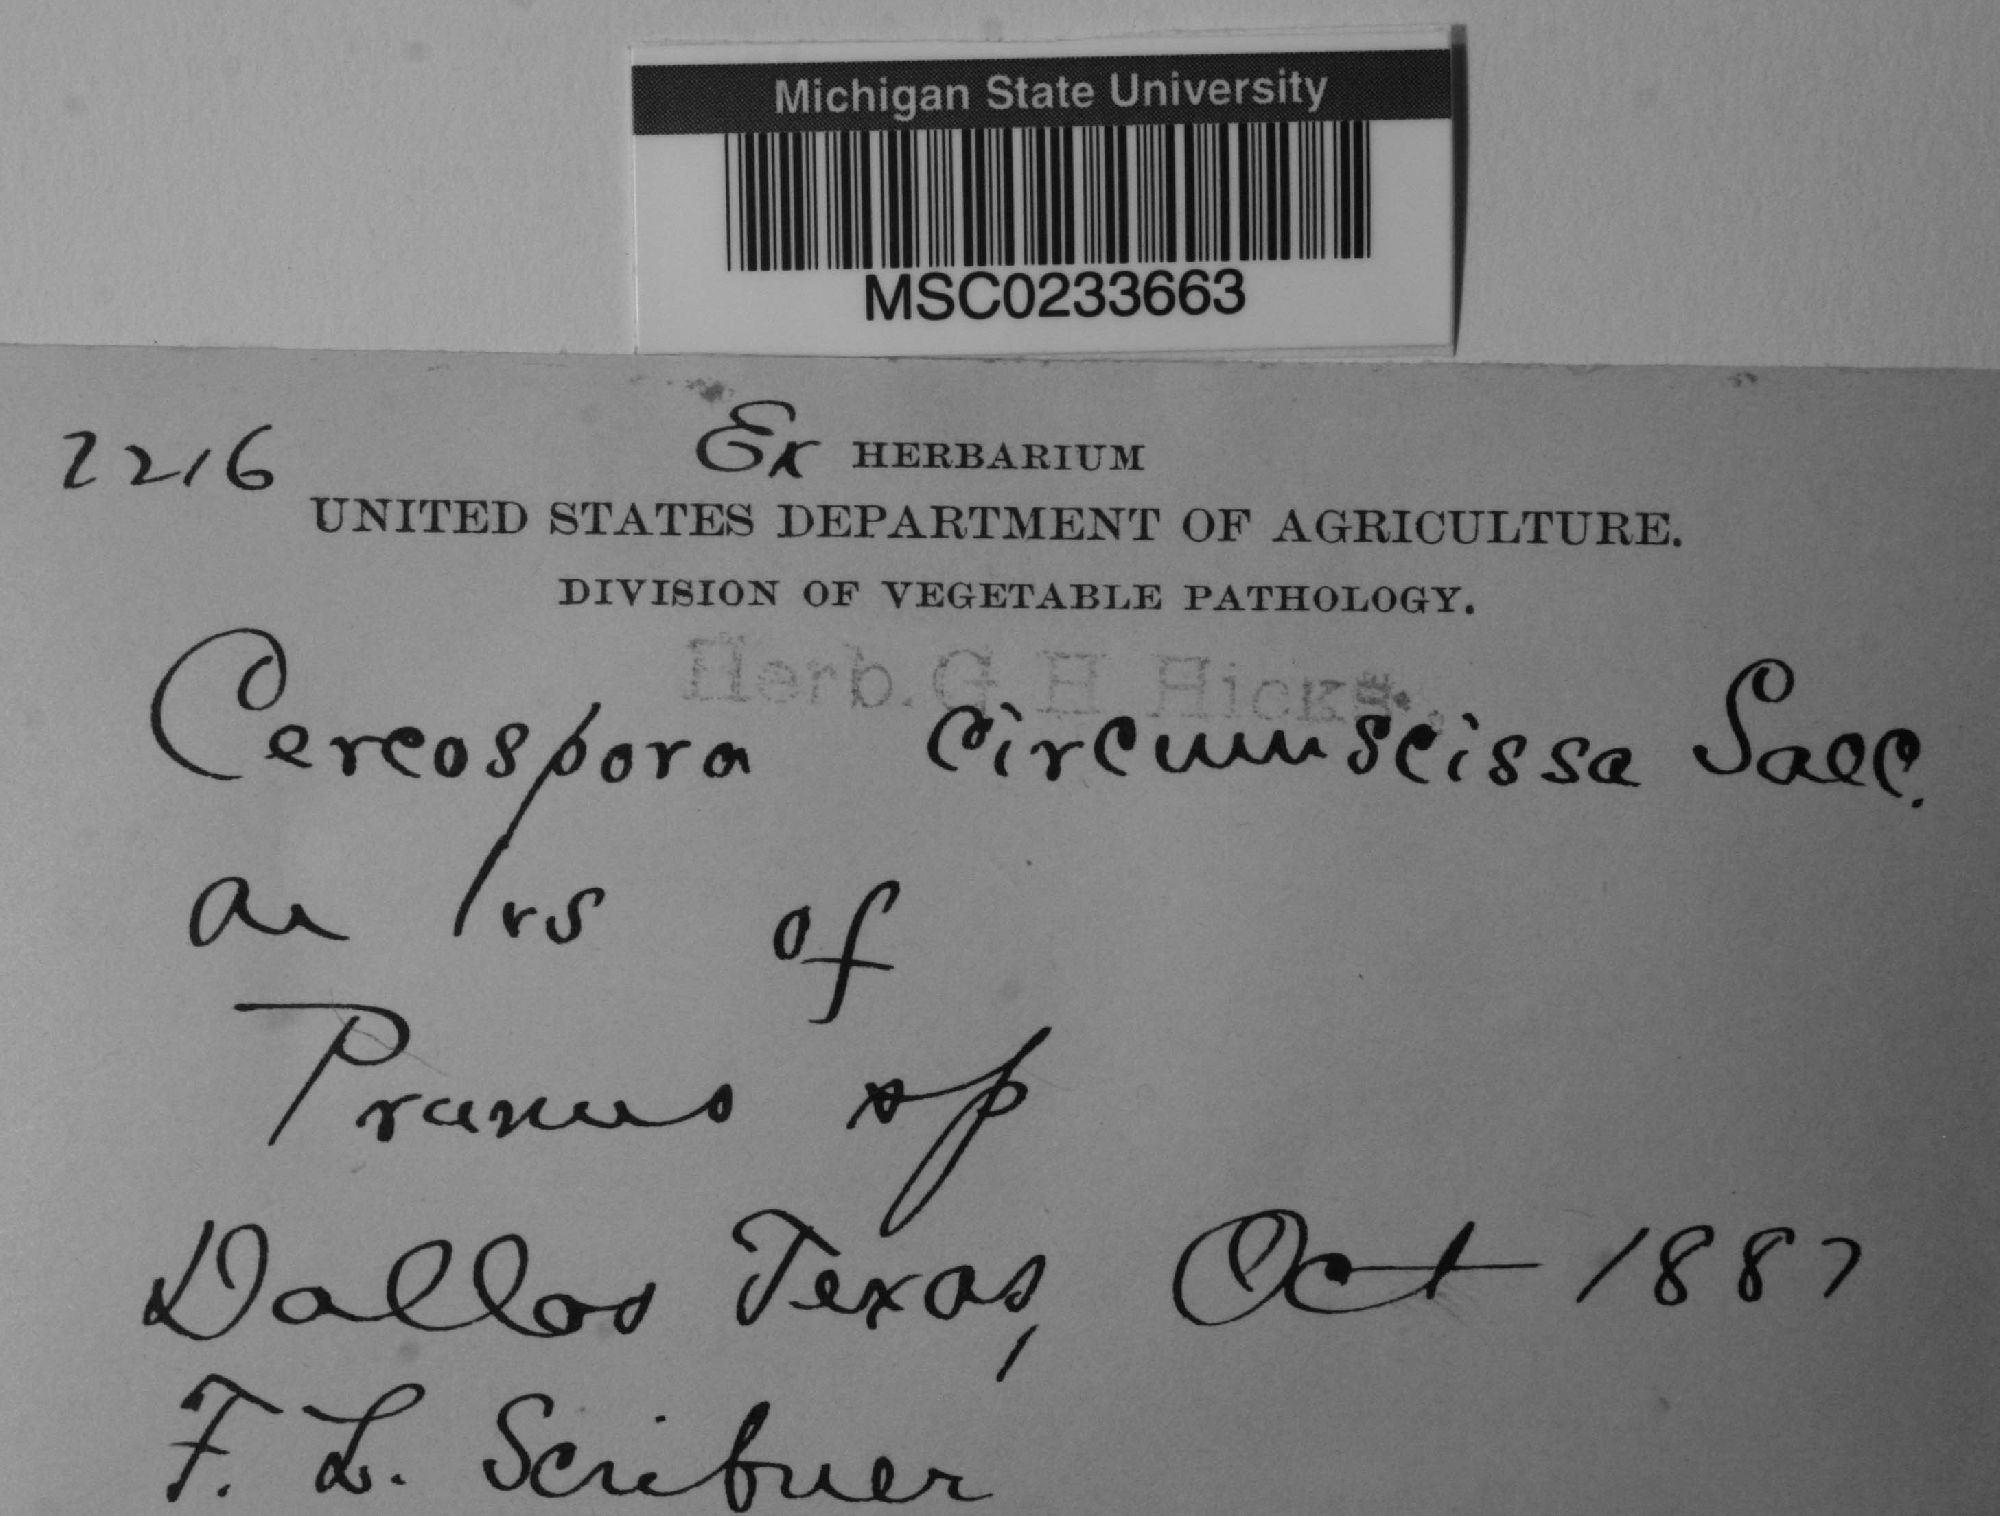 Michigan State University
MSC0233663
2216 Ex HERBARIUM
UNITED STATES DEPARTMENT OF AGRICULTURE.
DIVISION OF VEGETABLE PATHOLOGY.
Herb. G H Hicks.
Cercospora circumscissa Sacc.
on lvs of
Prunus sp
Dallas Texas, Oct 1887
F. L. Scribner